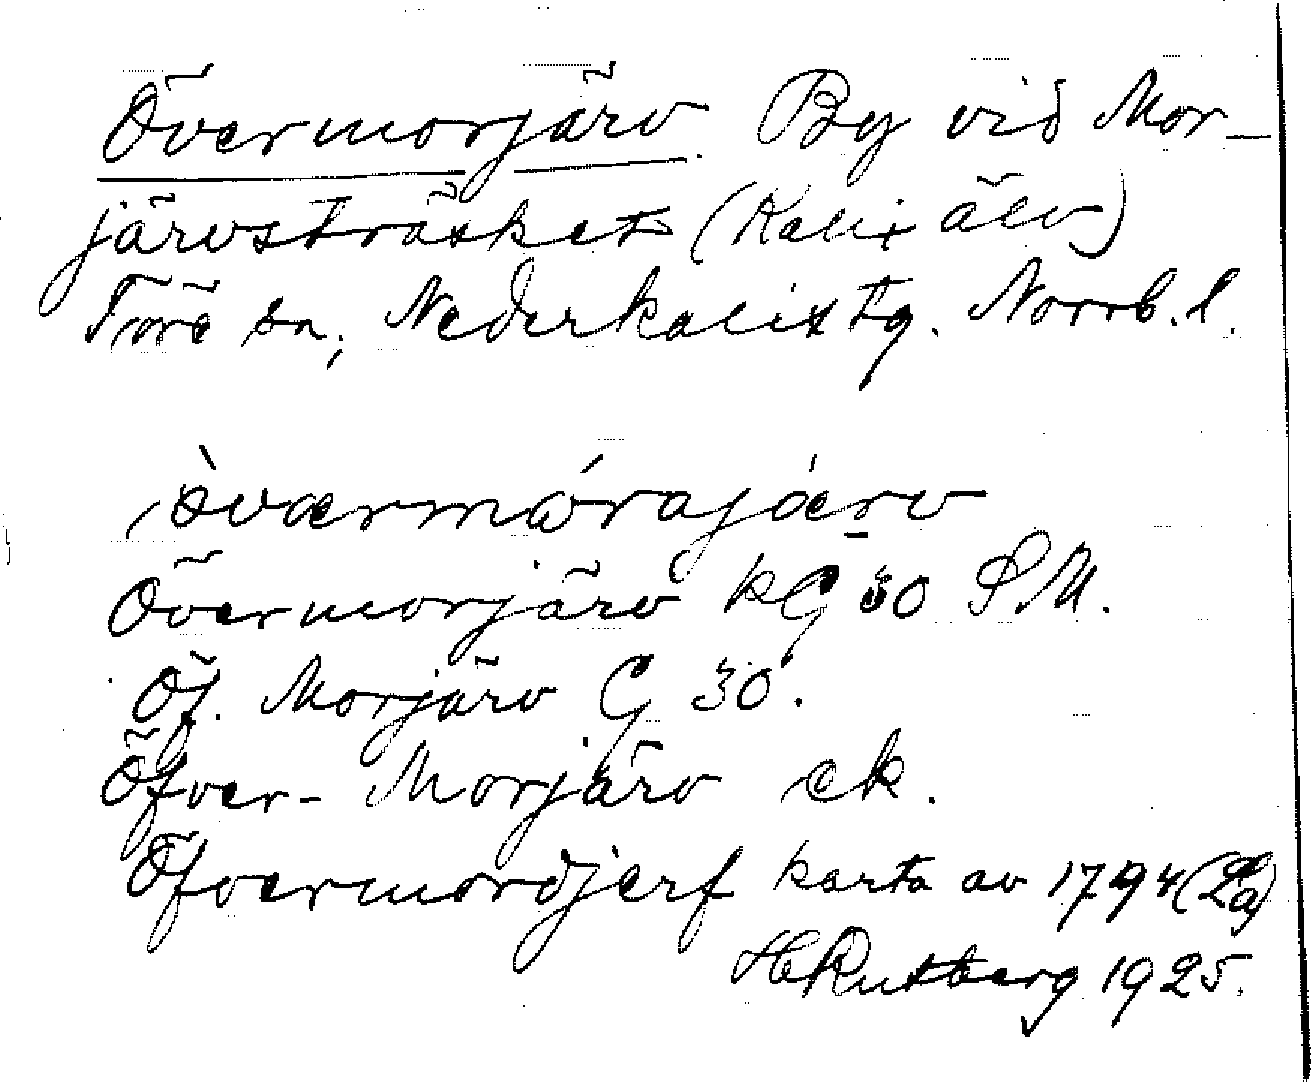 Övermorjärv By vid Mor-
järvsträsket (Kalix älv)
Töre sn, Nederkalix tg. Norrb. l.
Övermorjärv kG 30 S.M.
Öf. Morjärv G 30.
Öfver- Morjärv ek.
Öfvermordjerf karta av 1794 (La)
H Rutberg 1925.